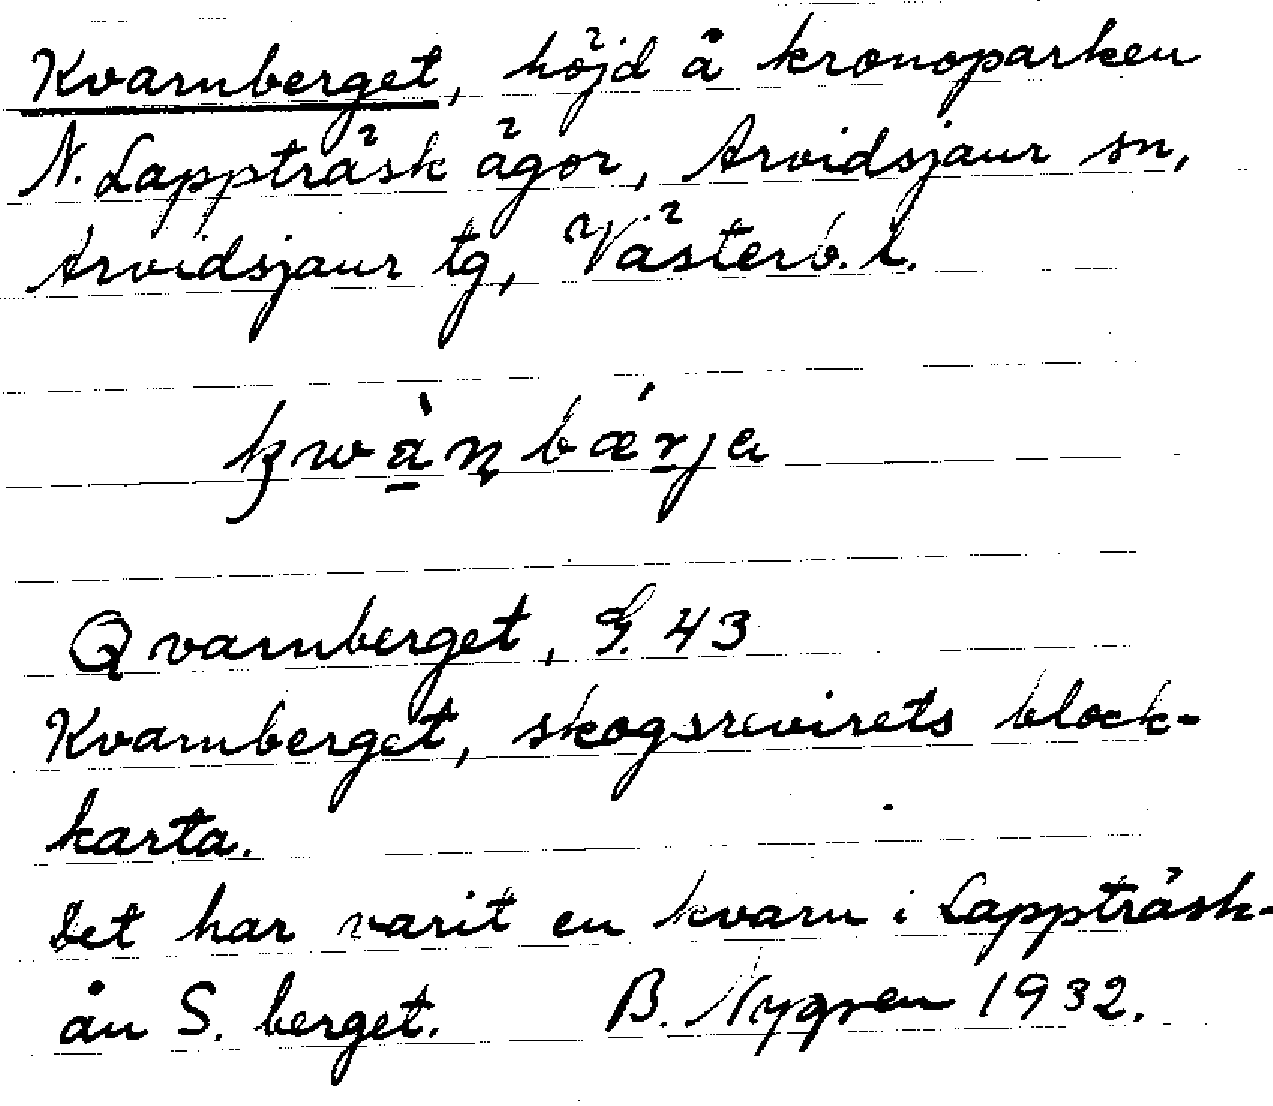 Kvarnberget, höjd å kronoparken
N. Lappträsk ägor, Arvidsjaur sn,
Arvidsjaur tg, Västerb. l.
kwànbǽrja
Qvarnberget, G. 43
Kvarnberget, skogsrevirets block-
karta.
Det har varit en kvarn i Lappträsk-
ån S. berget. B. Nygren 1932.